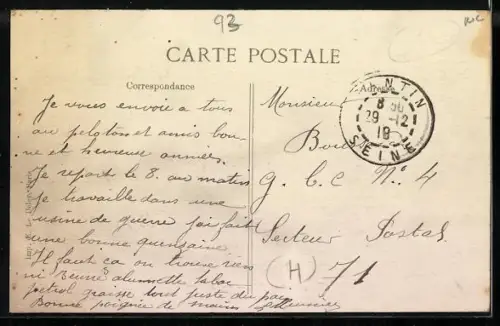 93
CARTE POSTALE
Correspondance
Adresse
Je vous envoie a tous
au peloton et amis bon
ne et heureuse année
Je repart le 8. au matin
Je travaille dans une
usine de guerre fait
une bonne quinzaine
Il faut ca on trouve rien
ni Beurre alumette tabac
petrol graisse tout juste du pain
Bonne poignée de main
Monsieur
G. C. N° 4
Secteur Postal
(H) 71
PANTIN
8 50
29 -12
18
SEINE